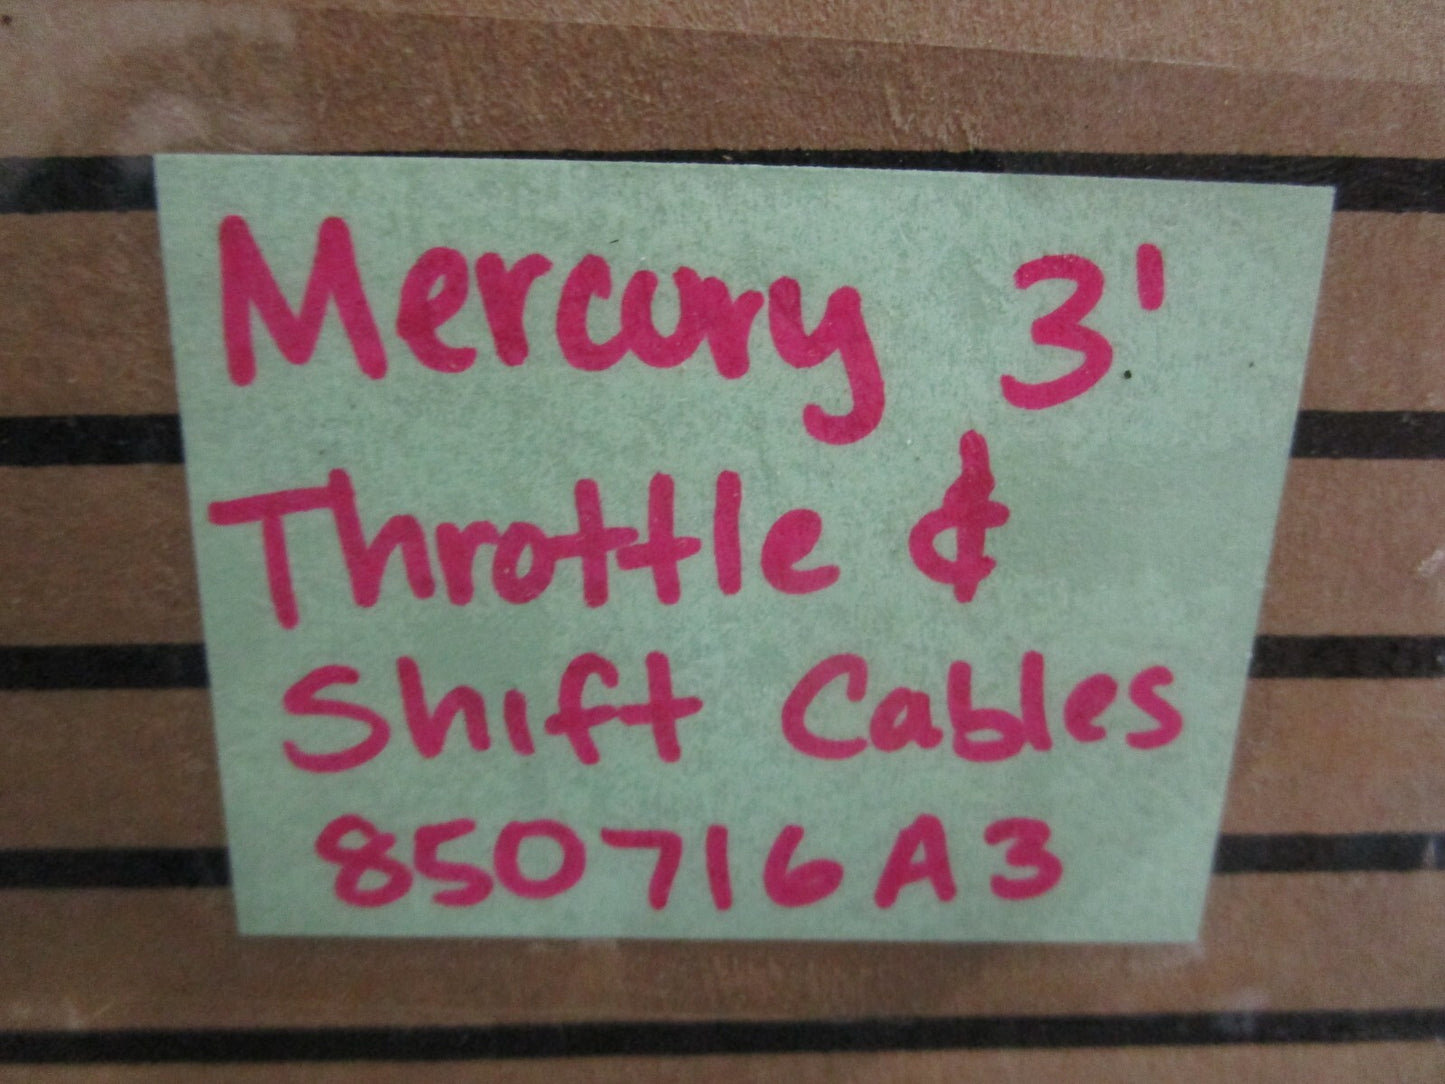 Mercury 3'
Throttle &
Shift Cables
850716A3